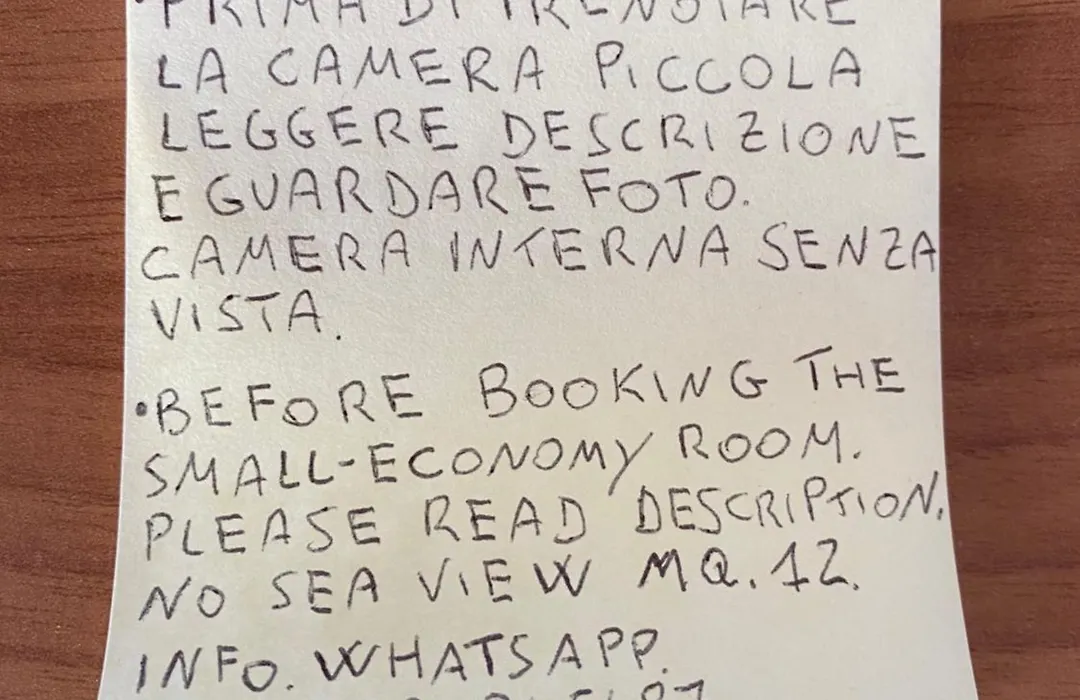 •PRIMA DI PRENOTARE
LA CAMERA PICCOLA
LEGGERE DESCRIZIONE
E GUARDARE FOTO.
CAMERA INTERNA SENZA
VISTA.
•BEFORE BOOKING THE
SMALL-ECONOMY ROOM.
PLEASE READ DESCRIPTION.
NO SEA VIEW MQ.12.
INFO. WHATSAPP.